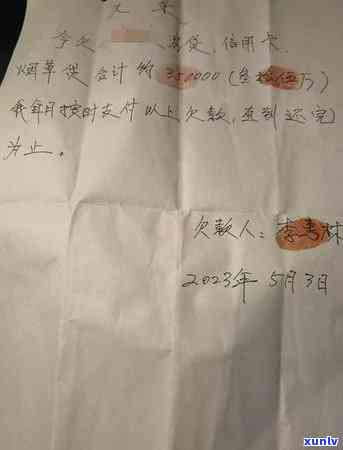 欠条
今欠 房贷,信用卡.
烟草贷 合计 约 350000(叁拾伍万)
我每月按时支付以上欠款,直到还完
为止。
欠款人:李秀林
2023年5月3日
xunlv